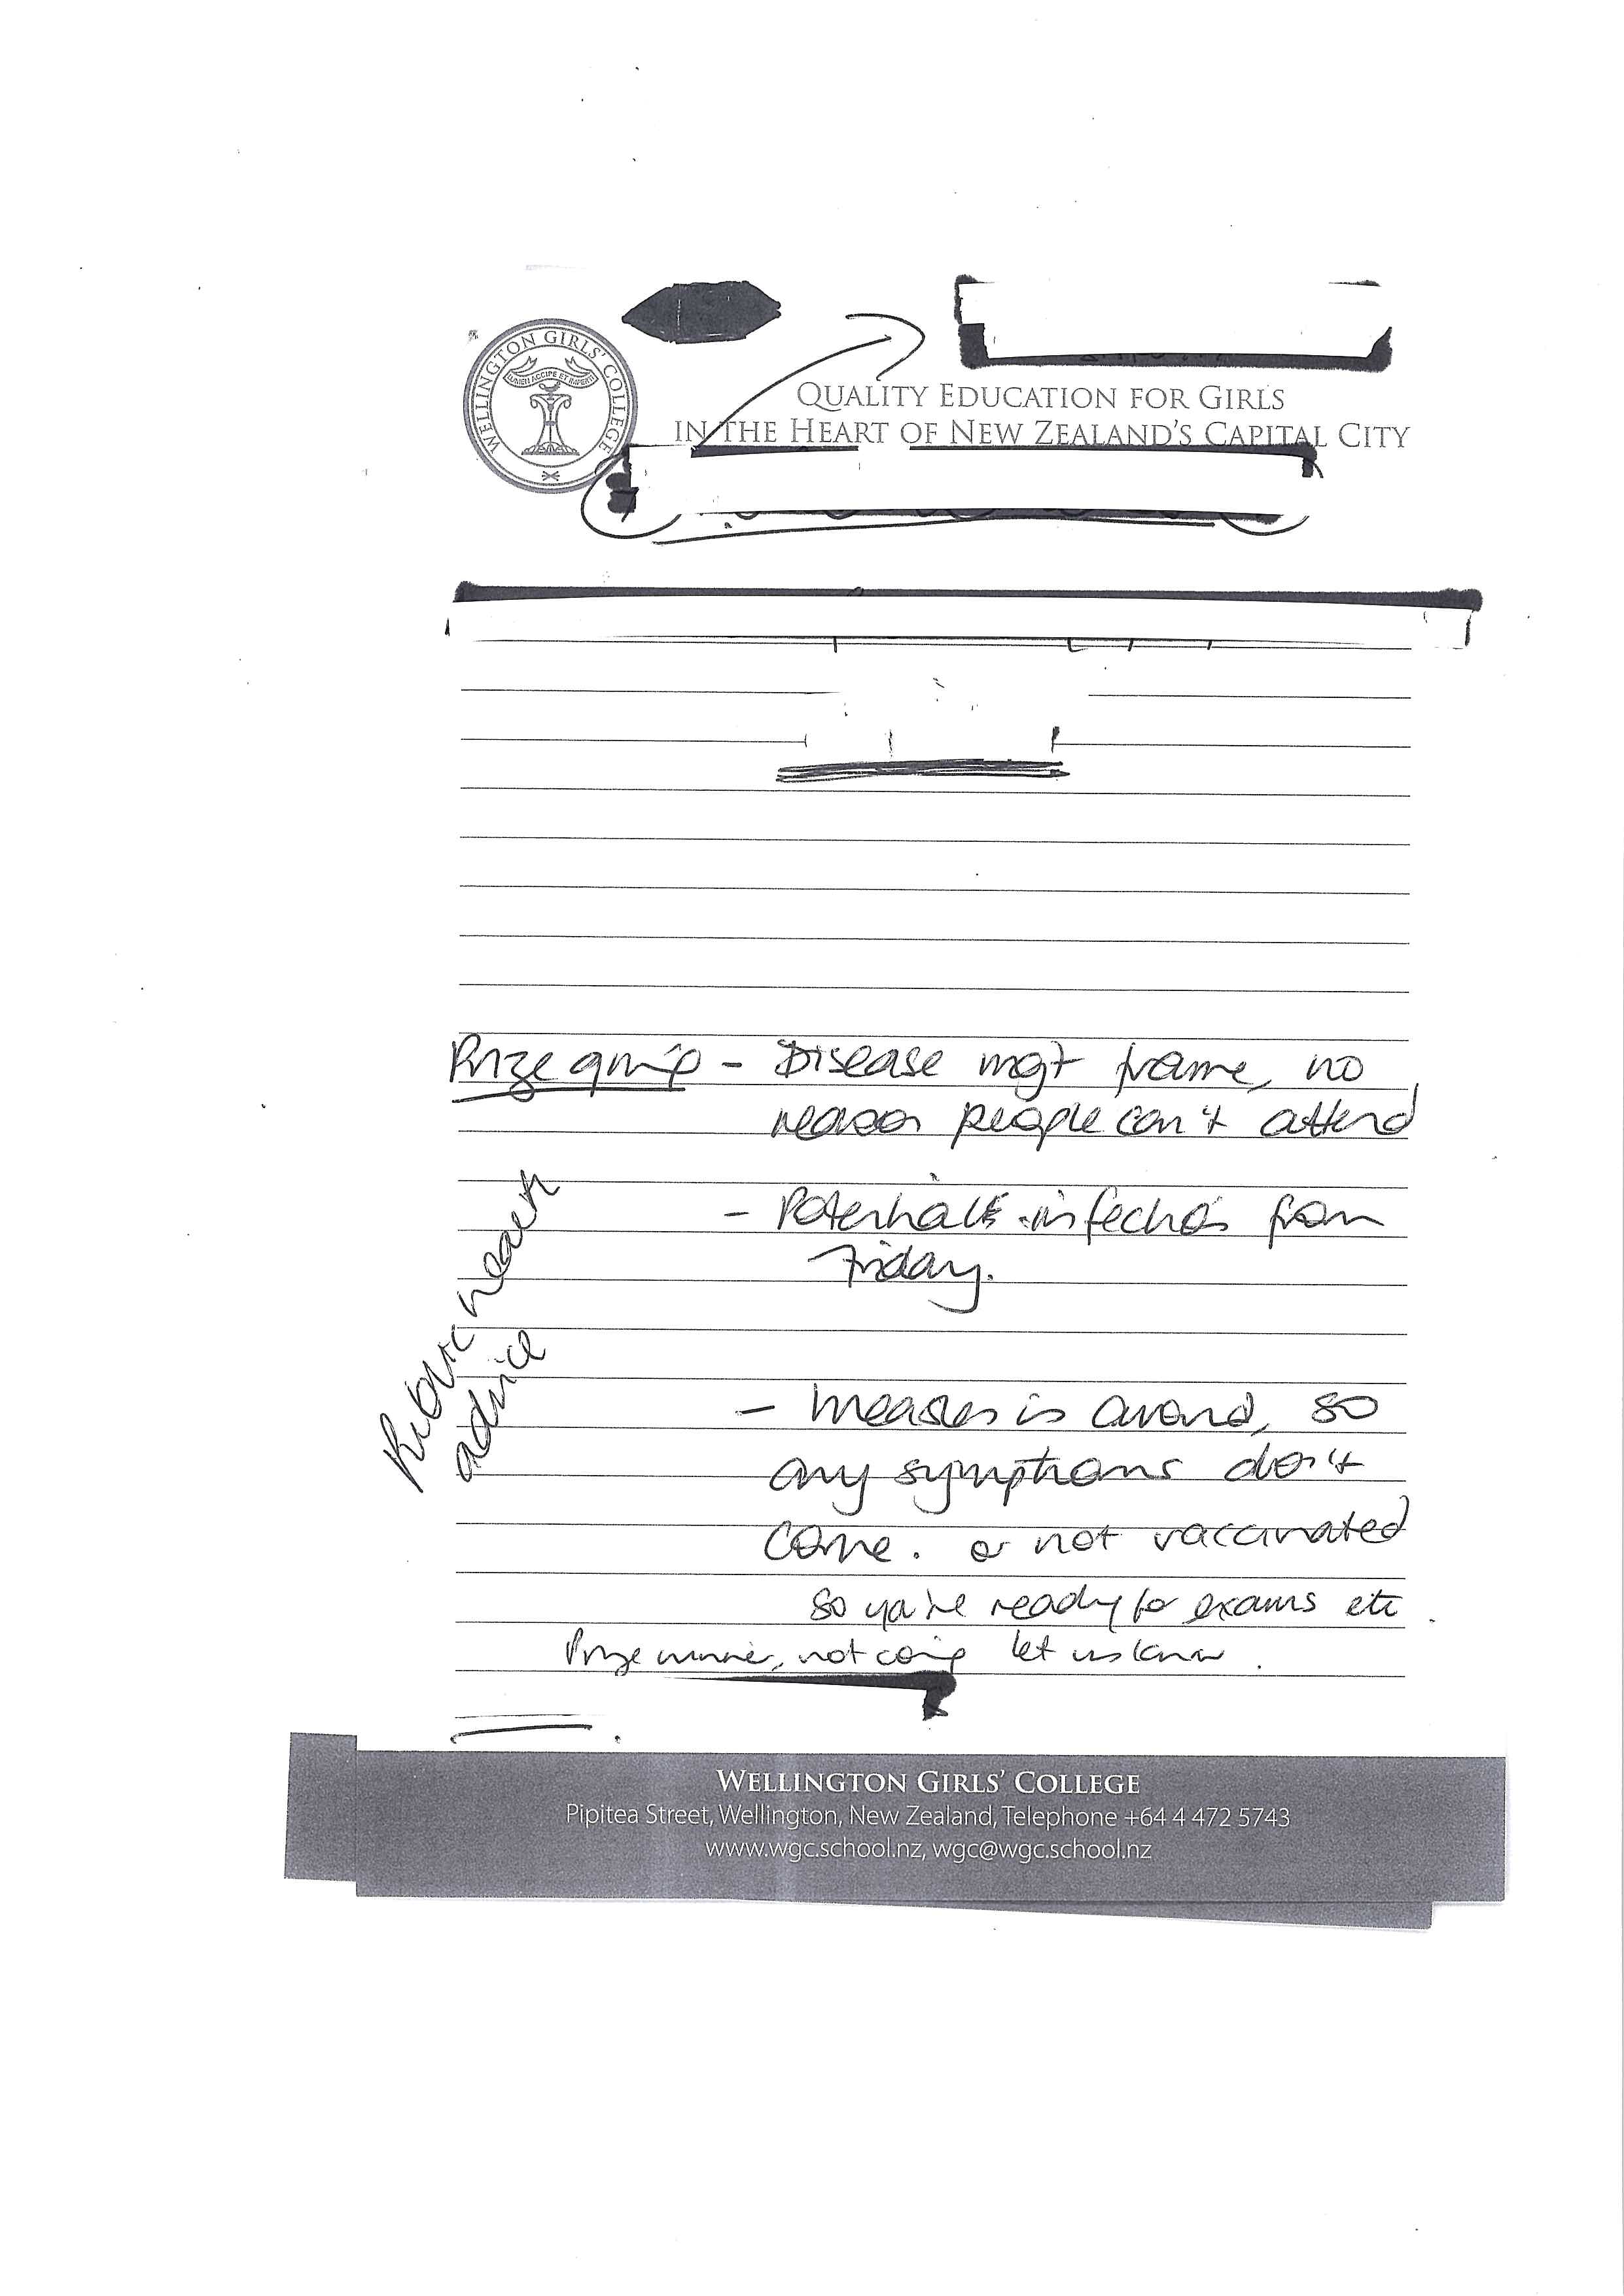 WELLINGTON GIRLS' COLLEGE
LUMEN ACCIPE ET IMPERTI
QUALITY EDUCATION FOR GIRLS
IN THE HEART OF NEW ZEALAND'S CAPITAL CITY
Prize giving - Disease mgt frame, no
reason people can't attend
- Potential infections from
Friday.
Public health
advice
- measles is around, so
any symptoms don't
come. or not vaccinated
so you're ready for exams etc.
Prize winner, not coming let us know.
WELLINGTON GIRLS' COLLEGE
Pipitea Street, Wellington, New Zealand, Telephone +64 4 472 5743
www.wgc.school.nz, wgc@wgc.school.nz